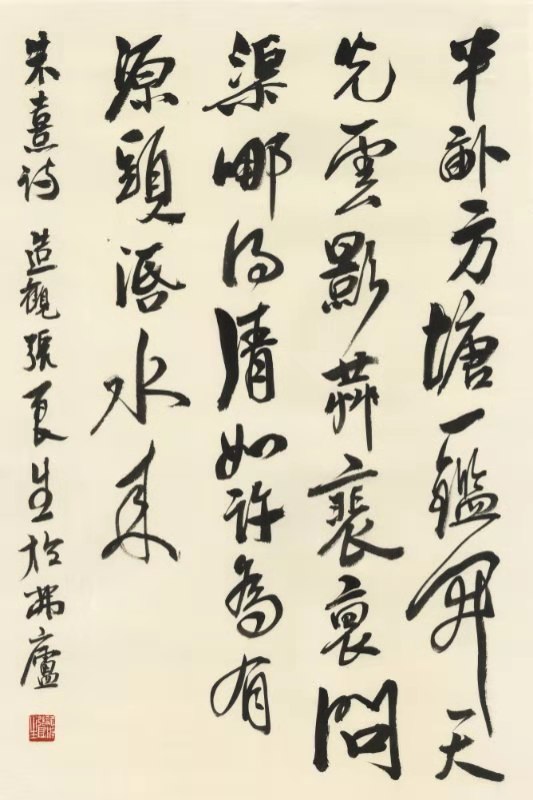 半畝方塘一鑑開天
光雲影共裴問
渠哪得清如許為有
源頭活水来
朱熹詩 造觀張生於廬